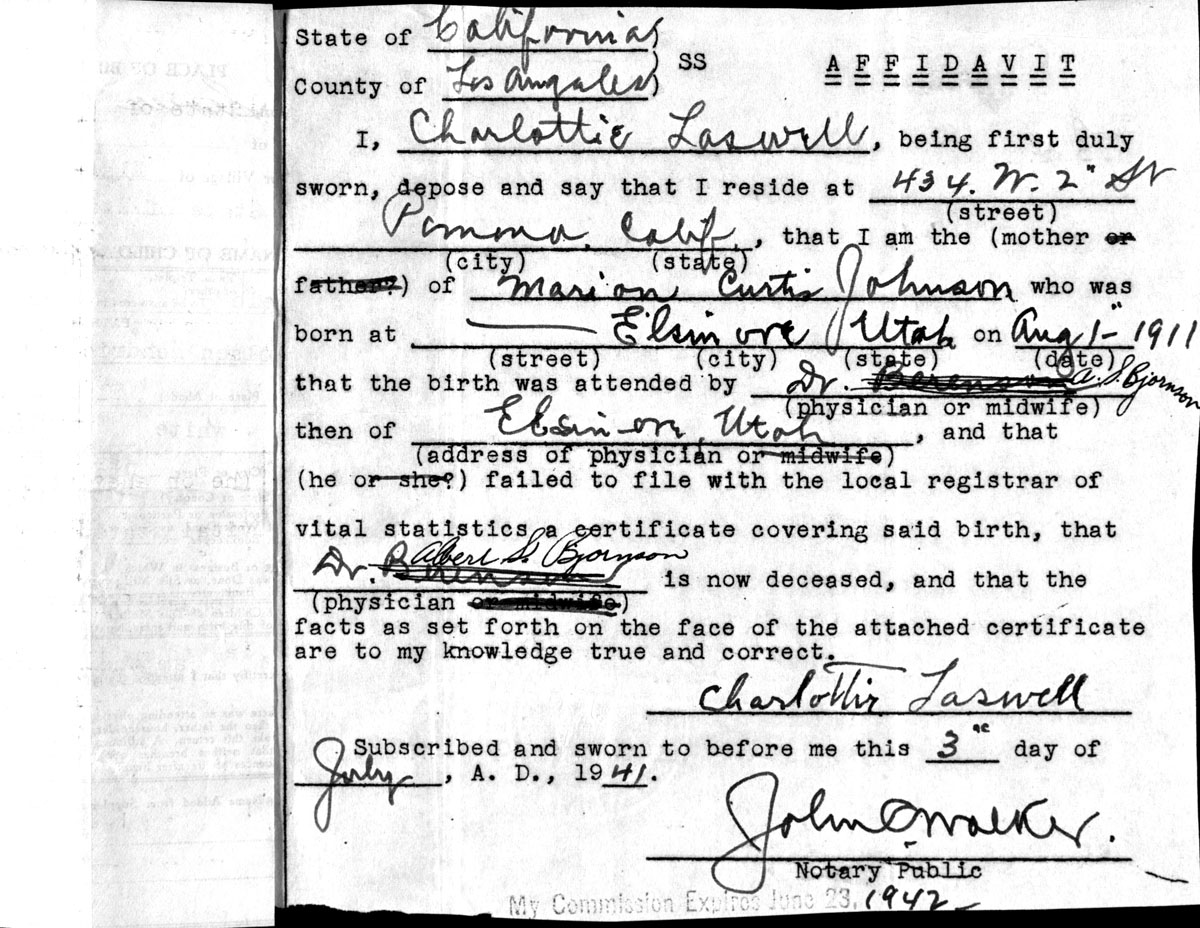 State of California )
) SS AFFIDAVIT
County of Los Angeles )
I, Charlottie Laswell, being first duly
sworn, depose and say that I reside at 434. W. 2" St
(street)
Pomona, Calif, that I am the (mother or
(city) (state)
father?) of Marion Curtis Johnson who was
born at Elsinore Utah on Aug 1" 1911
(street) (city) (state) (date)
that the birth was attended by Dr. Berenson A. S. Bjornson
(physician or midwife)
then of Elsinore, Utah, and that
(address of physician or midwife)
(he or she?) failed to file with the local registrar of
vital statistics a certificate covering said birth, that
Albert S. Bjornson
Dr. Berenson is now deceased, and that the
(physician or midwife)
facts as set forth on the face of the attached certificate
are to my knowledge true and correct.
Charlottie Laswell
Subscribed and sworn to before me this 3 day of
July, A. D., 1941.
John Walker.
Notary Public
My Commission Expires June 23, 1942
PLACE OF
NAME OF CHILD